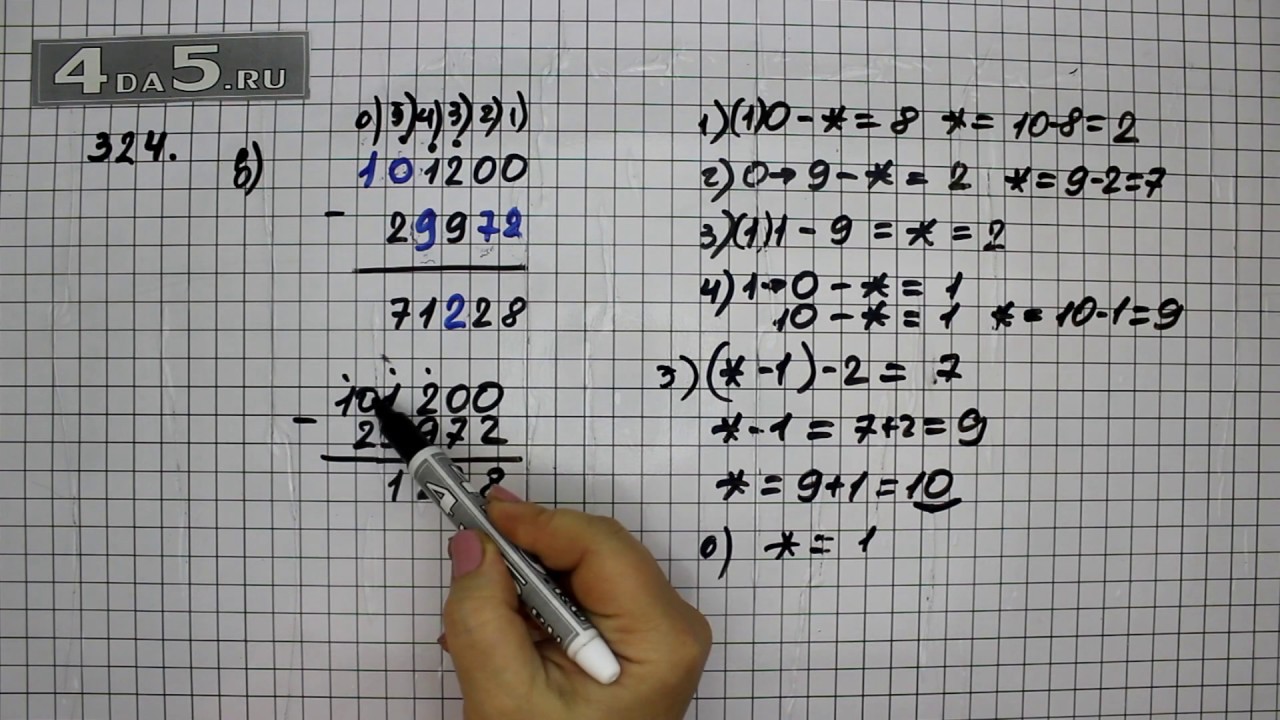 4DA5.RU
324.
в)
0) 5) 4) 3) 2) 1)
101200
- 29972
71228
101200
-
972
1
8
1) (1)0 - * = 8 * = 10-8=2
2) 0→ 9 - * = 2 * = 9-2=7
3) (1)1 - 9 = * = 2
4) 1→0 - * = 1
10 - * = 1 * = 10-1=9
5) (* -1) -2 = 7
* - 1 = 7+2=9
* = 9+1=10
0) * = 1